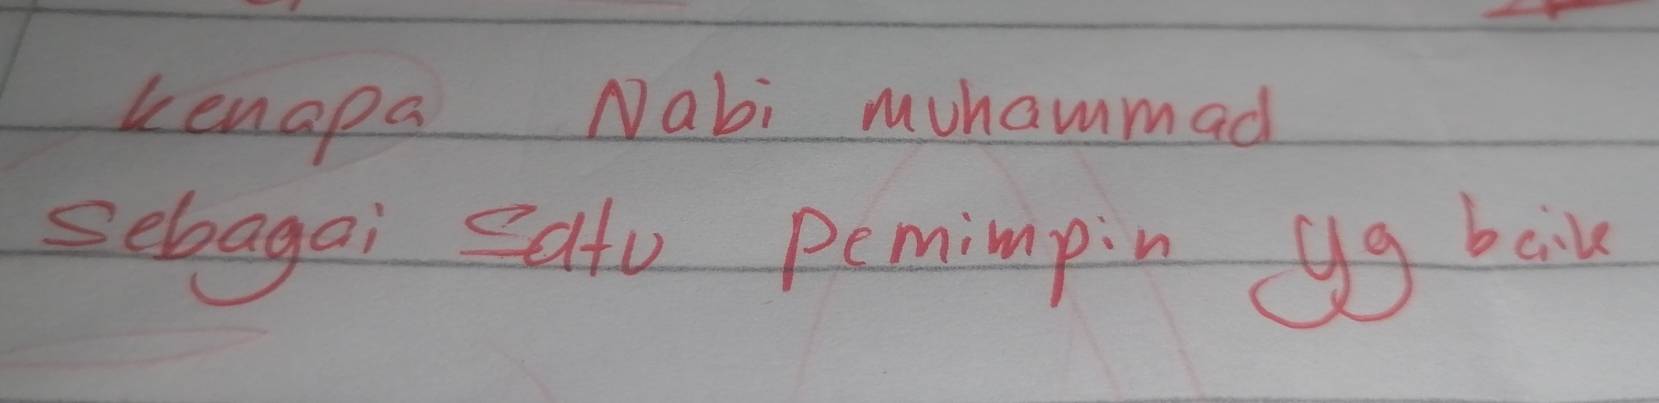 kenapa Nabi muhammad
sebagai satu pemimpin yg baik